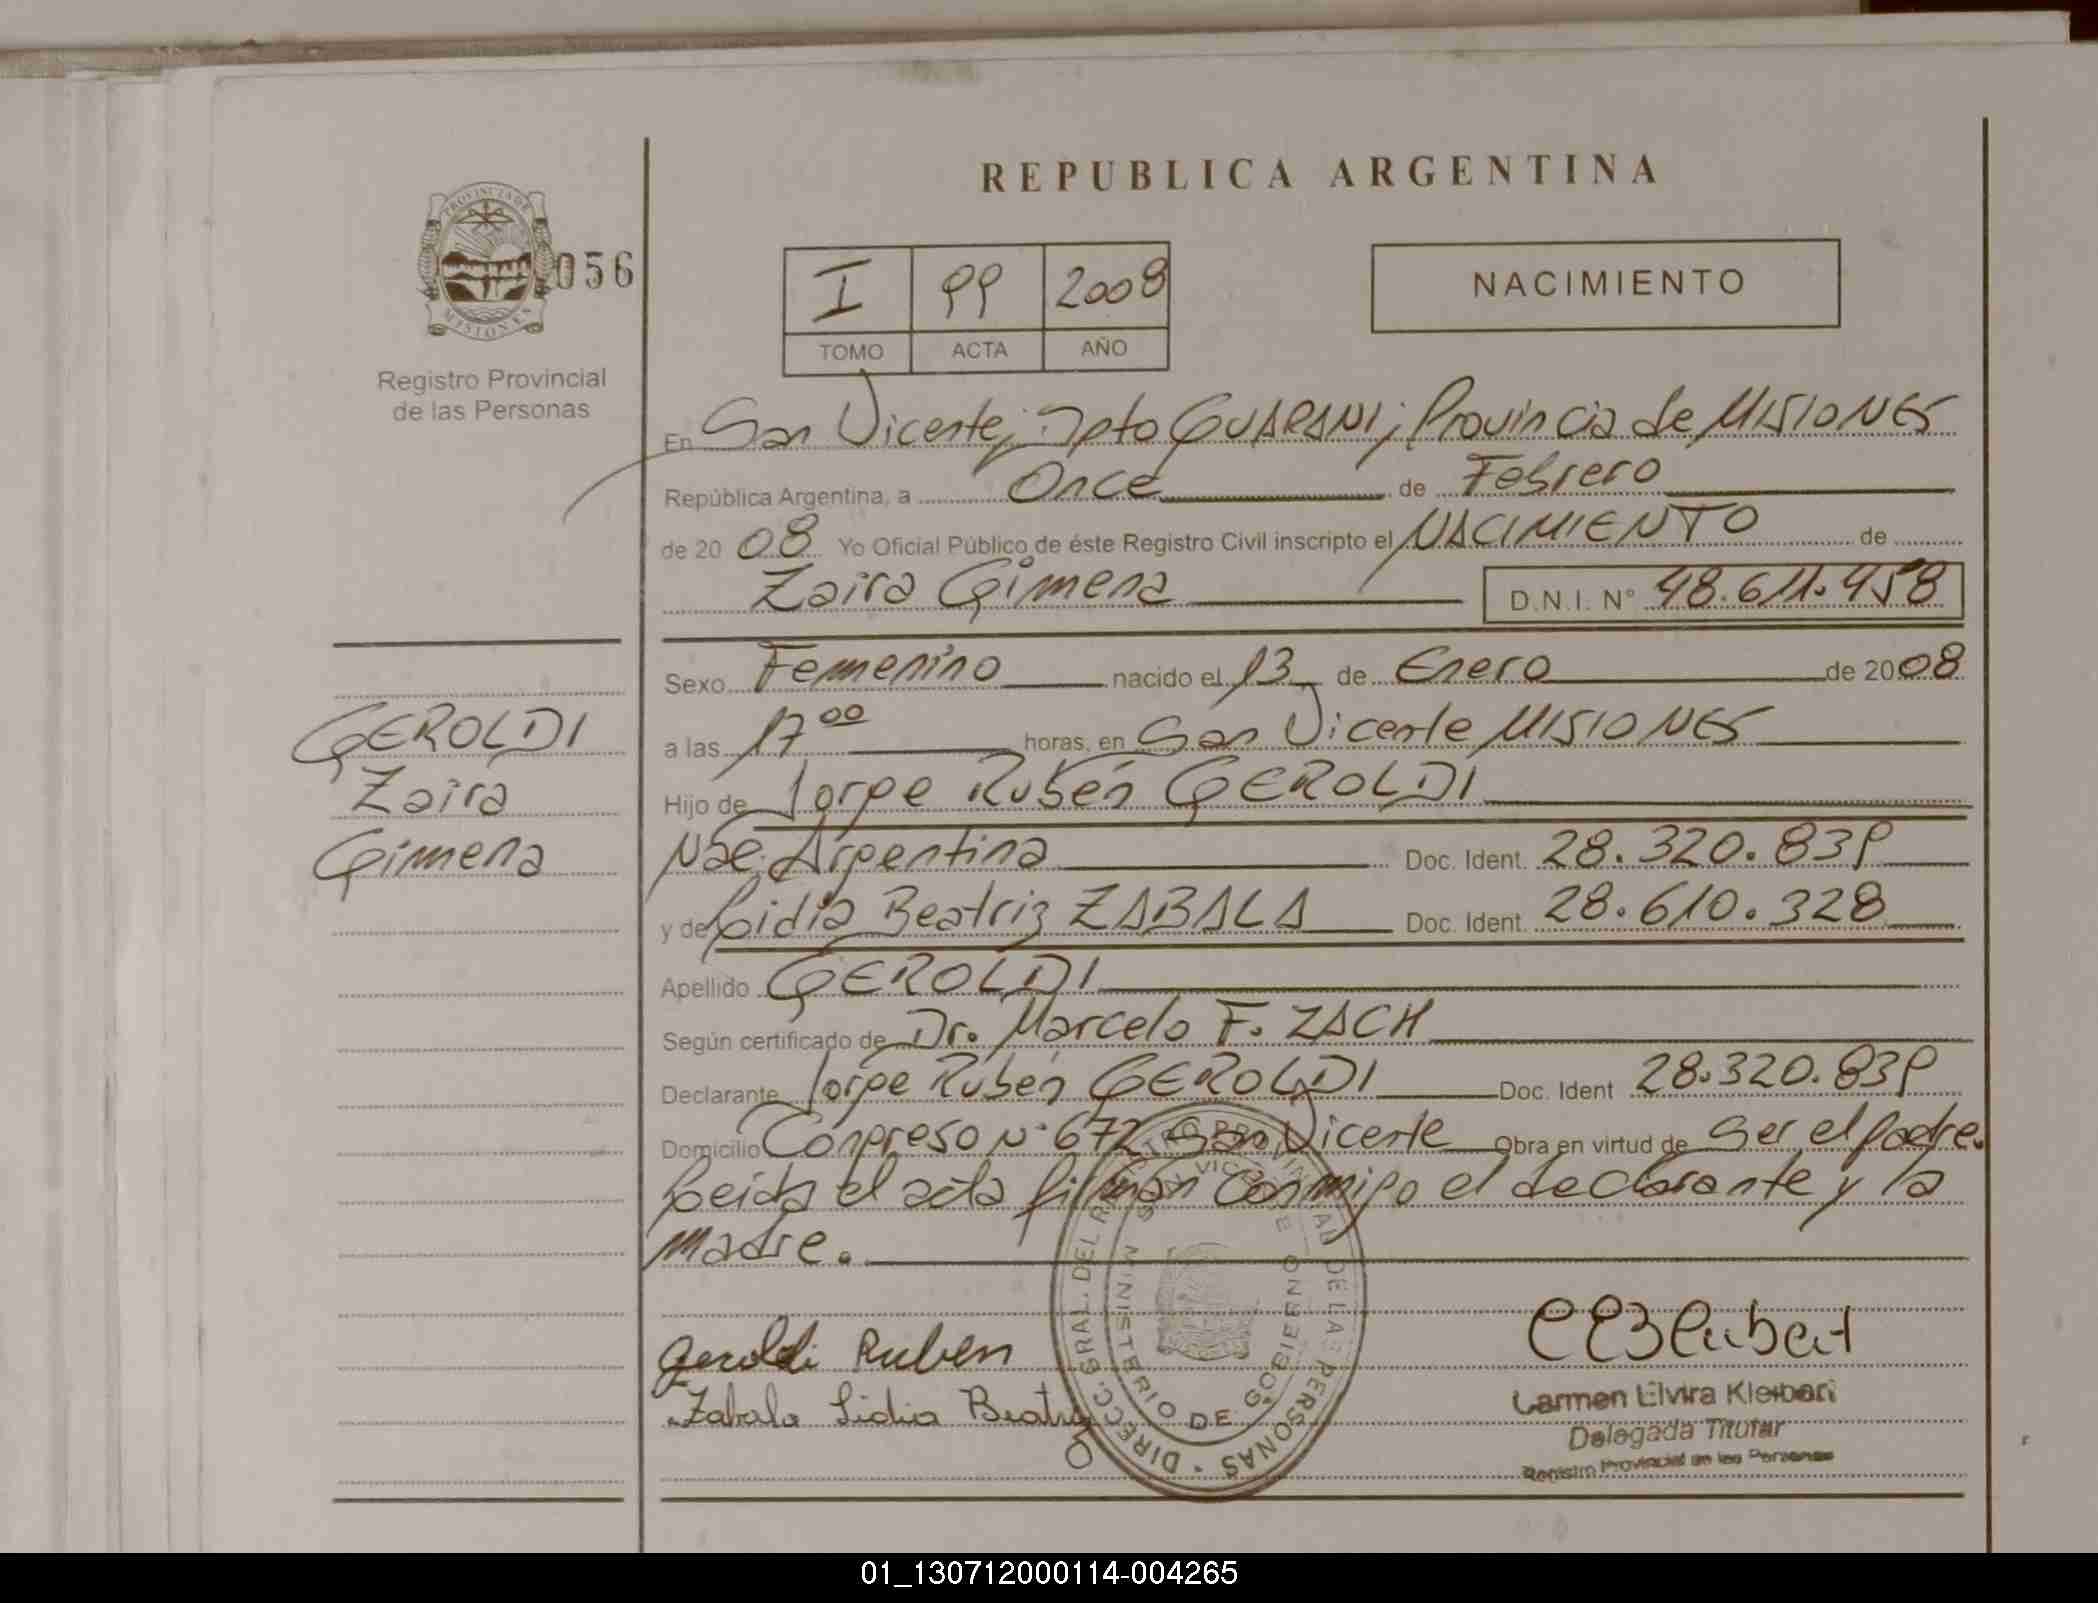 REPUBLICA ARGENTINA
PROVINCIA DE MISIONES
056
Registro Provincial
de las Personas
I 99 2008
TOMO ACTA AÑO
NACIMIENTO
En San Vicente, Dpto GUARANI, Provincia de MISIONES
República Argentina, a Once de Febrero
de 2008 Yo Oficial Público de éste Registro Civil inscripto el NACIMIENTO de
Zaira Gimena D.N.I. N° 48.611.458
Sexo Femenino nacido el 13 de Enero de 2008
a las 17 00 horas, en San Vicente MISIONES
Hijo de Jorge Rubén GEROLDI
Nac. Argentina Doc. Ident. 28.320.839
y de Lidia Beatriz ZABALA Doc. Ident. 28.610.328
Apellido GEROLDI
Según certificado de Dr. Marcelo F. ZACH
Declarante Jorge Rubén GEROLDI Doc. Ident 28.320.839
Domicilio Congreso N° 672 San Vicente Obra en virtud de Ser el padre.
Leida el acta firman conmigo el declarante y la
madre.
GEROLDI
Zaira
Gimena
Geroldi Ruben
Zabala Lidia Beatriz
DIRECC. GRAL. DEL REGISTRO PROVINCIAL DE LAS PERSONAS
MINISTERIO DE GOBIERNO
Carmen Elvira
Delegada Titular
Registro Provincial de las Personas
01_130712000114-004265